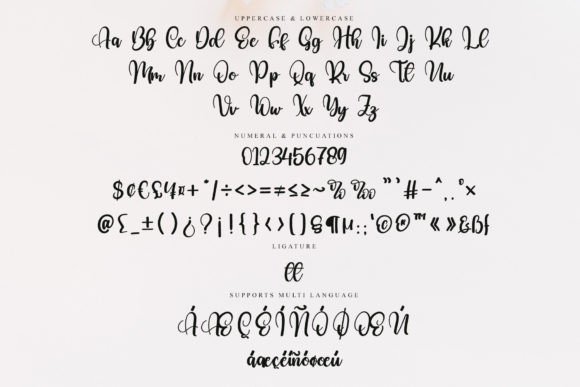 UPPERCASE & LOWERCASE
Aa Bb Cc Dd Ee Ff Gg Hh Ii Jj Kk Ll
Mm Nn Oo Pp Qq Rr Ss Tt Uu
Vv Ww Xx Yy Zz
NUMERAL & PUNCUATIONS
0123456789
$¢€£¥¤+*/÷<>=≠≤≥~%‰"'#-^,.°×
@{_±()¿?¡!{}‹›[]§¶µ:;'©®™«»&ß
LIGATURE
tt
SUPPORTS MULTI LANGUAGE
ÁÆÇÉÍÑÓØŒÚ
áæçéíñóøœú